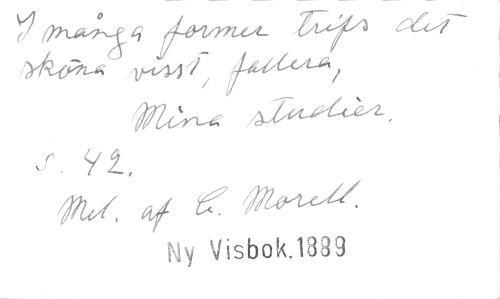 I många former trifs det
sköna visst, fallera,
Mina studier.
s. 42.
Mel. af C. Morell.
Ny Visbok.1889